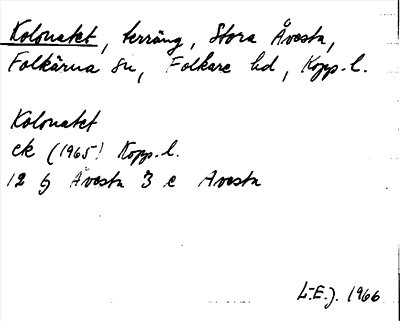 Kolonatet, terräng, Stora Åvesta,
Folkärna sn, Folkare hd, Kopp. l.
Kolonatet
ek (1965) Kopp. l.
12 G Avesta 3 e Avesta
L-E.J. 1966